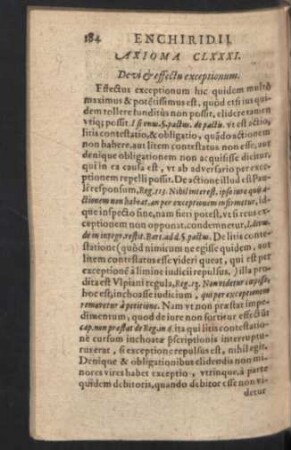 184 ENCHIRIDII
AXIOMA CLXXXI.
De vi & effectu exceptionum.
Effectus exceptionum hic quidem multò
maximus & potẽtissimus est, quòd etsi ius qui-
dem tollere funditùs non possit, elidere tamen
vtiq; possit. l. si vnus. §. pactus. de pactis. vt est actio,
litis contestatio, & obligatio, quãdo actionem
non habere, aut litem contestatus non esse, aut
denique obligationem non acquisisse dicitur,
qui in ea causa est, vt ab aduersario per exce-
ptionem repelli possit. De actione illud est Pau-
li responsum, Reg. 113. Nihil interest, ipso iure quis a-
ctionem non habeat, an per exceptionem infirmetur, id-
que inspecto fine, nam fieri potest, vt si reus exc
eptionem non opponat, condemnetur, l.
de in integr. restit. Bart. ad d. §. pactus. De litis conte-
statione (quòd nimirum ne egisse quidem, aut
litem contestatus esse videri queat, qui est per
exceptionẽ à limine iudicii repulsus. Illa pro-
dita est Vlpiani regula, Reg. 13. Non videtur cœpisse,
hoc est, inchoasse iudicium, qui per exceptionem
remouetur à petitione. Nam vt non præstat impe-
dimentum, quod de iure non sortitur effectũ
cap. non præstat de Reg. in 6. ita qui litis contestatio-
ne cursum inchoatæ præscriptionis interrup-
turus erat, si exceptione repulsus est, nihil egit.
Denique & obligationibus elidendis non mi-
nores vires habet exceptio, vtrinque, à parte
quidem debitoris, quando debitor esse non vi-
detur